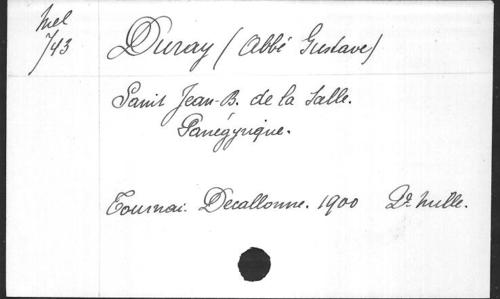 Mel
743
Duray (Abbé Gustave)
Saint Jean-B. de la Salle.
Panégyrique.
Tournai. Decallonne. 1900 2e mille.